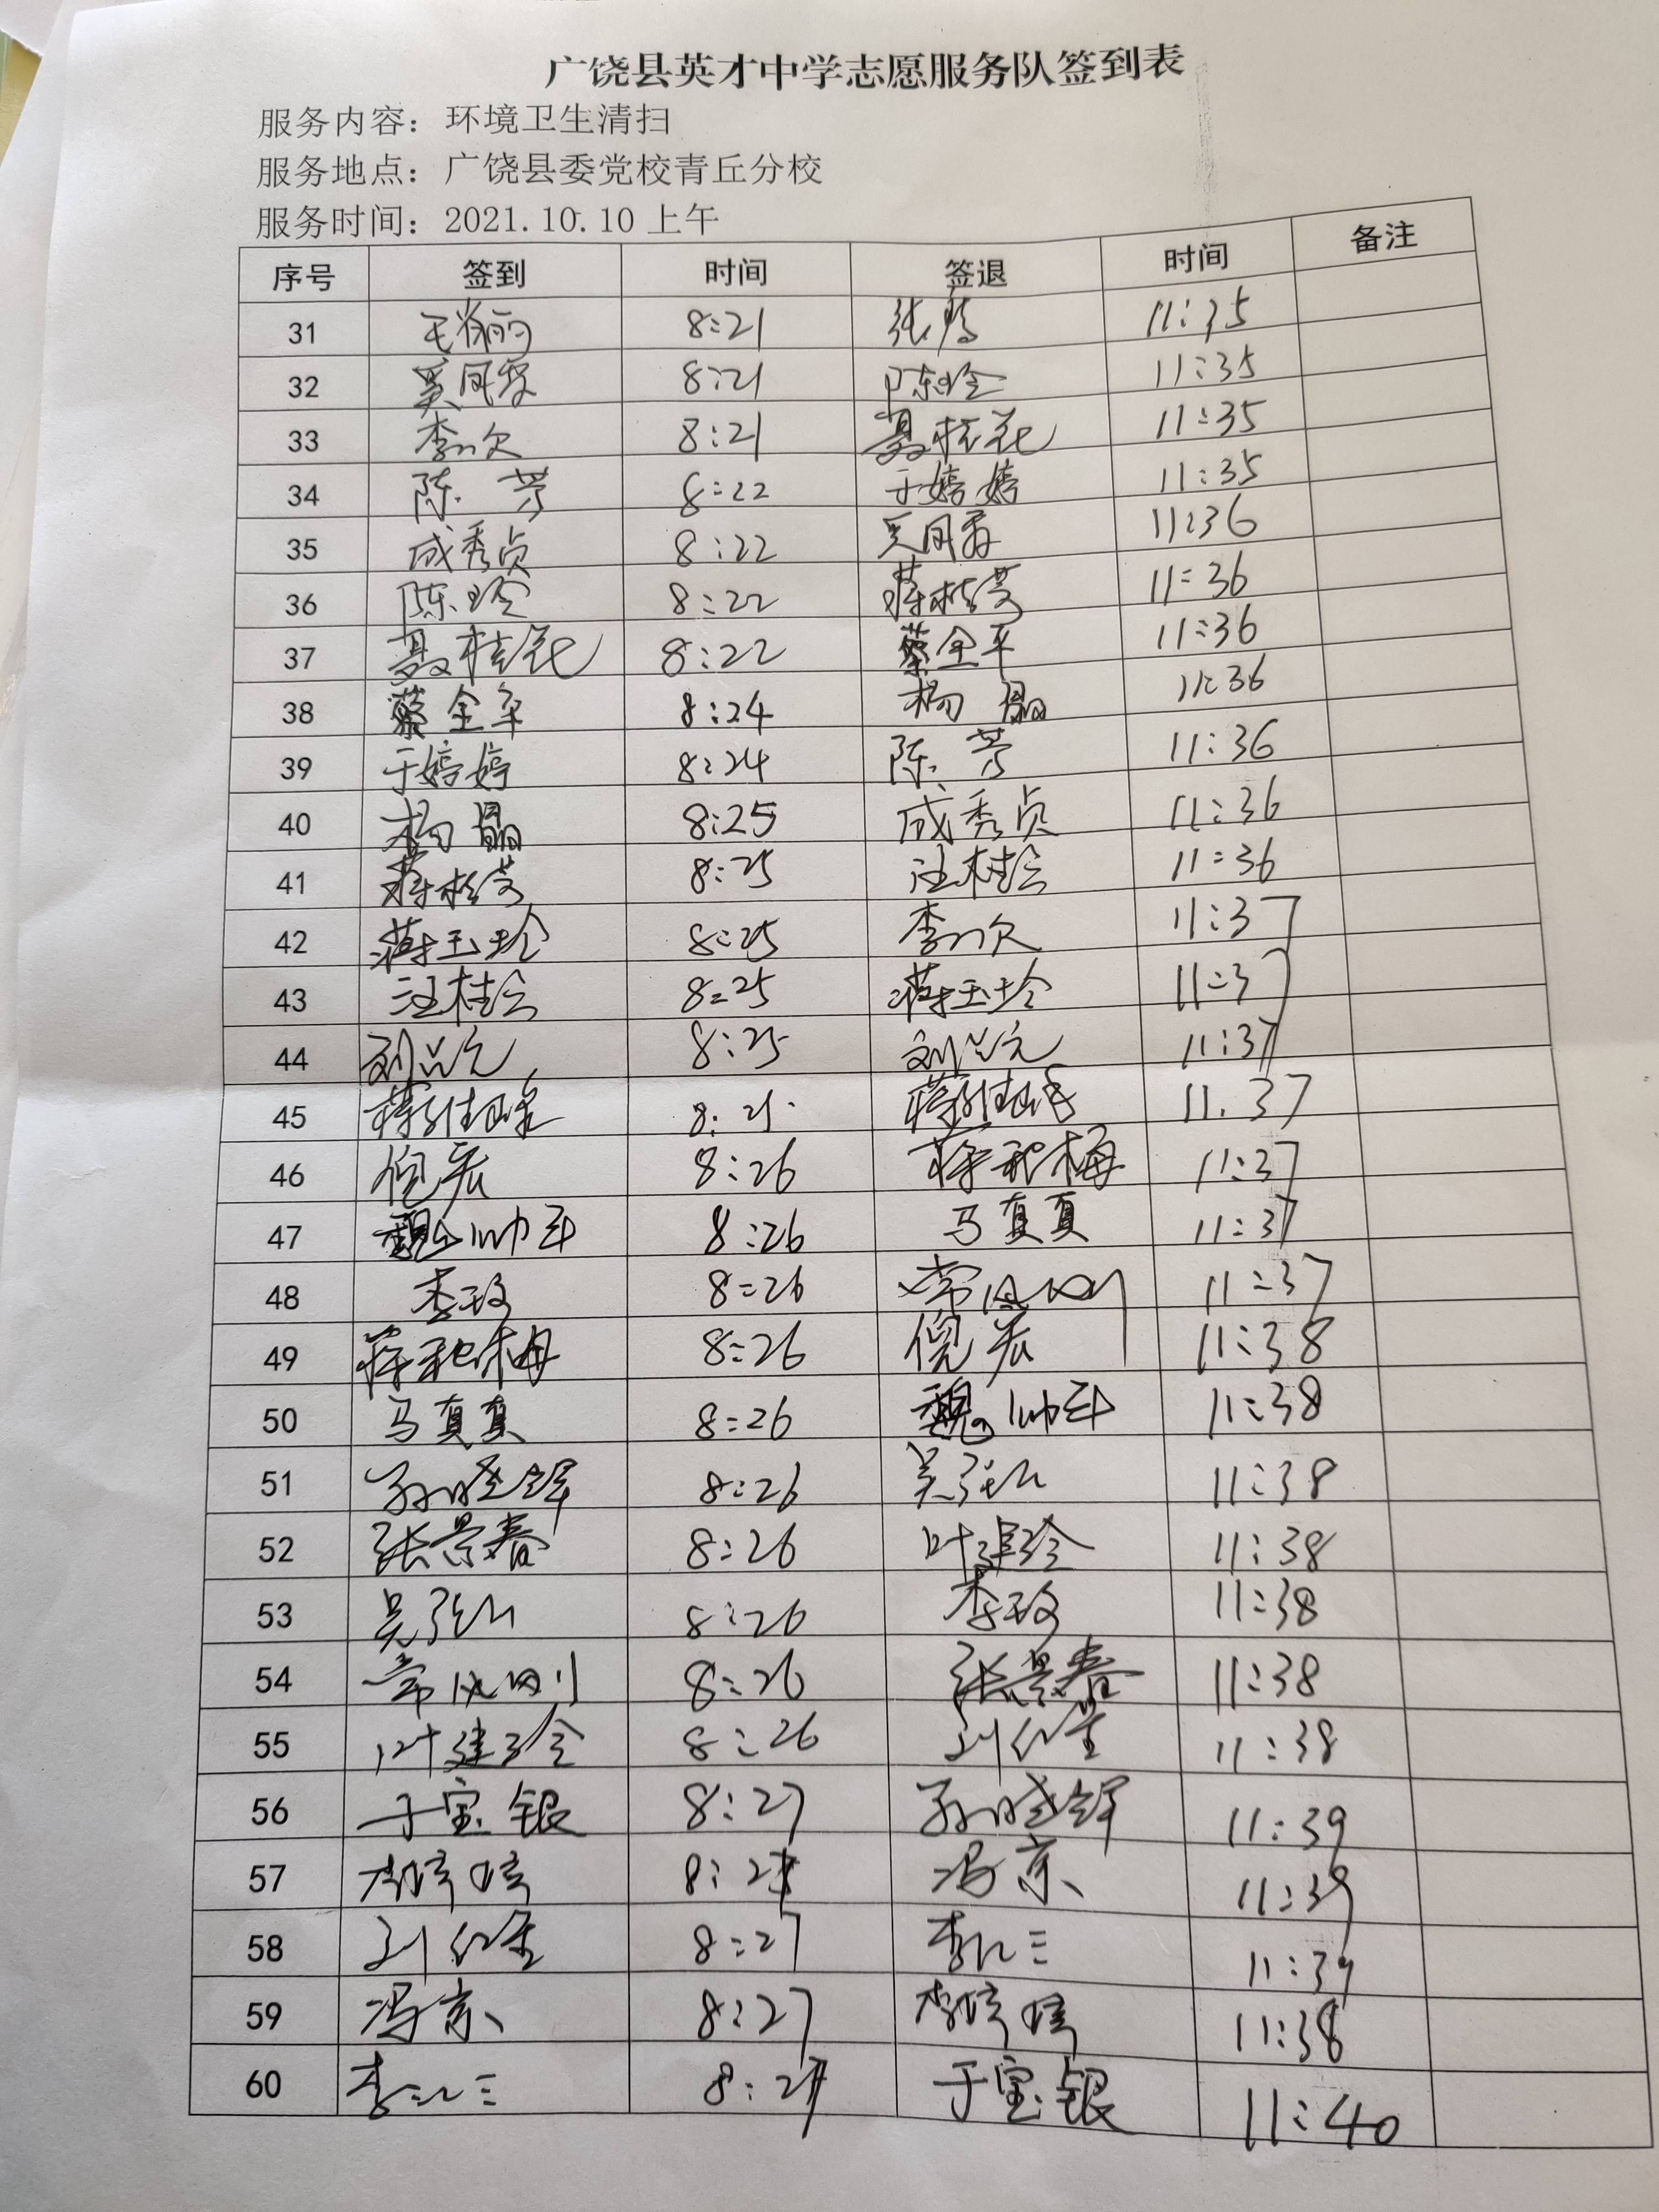 广饶县英才中学志愿服务队签到表
服务内容：环境卫生清扫
服务地点：广饶县委党校青丘分校
服务时间：2021.10.10 上午
序号 签到 时间 签退 时间 备注
31 8:21 张 11:35
32 8:21 陈玲 11:35
33 李 8:21 聂桂花 11:35
34 陈芳 8:22 于婷婷 11:35
35 成秀贞 8:22 11:36
36 陈玲 8:22 11:36
37 聂桂花 8:22 蔡全平 11:36
38 蔡全平 8:24 杨晶 11:36
39 于婷婷 8:24 陈芳 11:36
40 杨晶 8:25 成秀贞 11:36
41 8:25 汪桂兰 11:36
42 蒋玉玲 8:25 李 11:37
43 汪桂兰 8:25 蒋玉玲 11:37
44 刘 8:25 刘 11:37
45 蒋 蒋 11.37
46 倪宏 8:26 蒋 梅 11:37
47 魏帅 8:26 马真真 11:37
48 李玫 8:26 常 11:37
49 蒋 梅 8:26 倪宏 11:38
50 马真真 8:26 魏帅 11:38
51 孙晓辉 8:26 吴 11:38
52 张景春 8:26 叶建玲 11:38
53 吴 8:26 李玫 11:38
54 常 8:26 张景春 11:38
55 叶建玲 8:26 刘红 11:38
56 于宝银 8:27 孙晓辉 11:39
57 8:27 冯京 11:39
58 刘红 8:27 李 三 11:39
59 冯京 8:27 11:38
60 李 三 8:27 于宝银 11:40